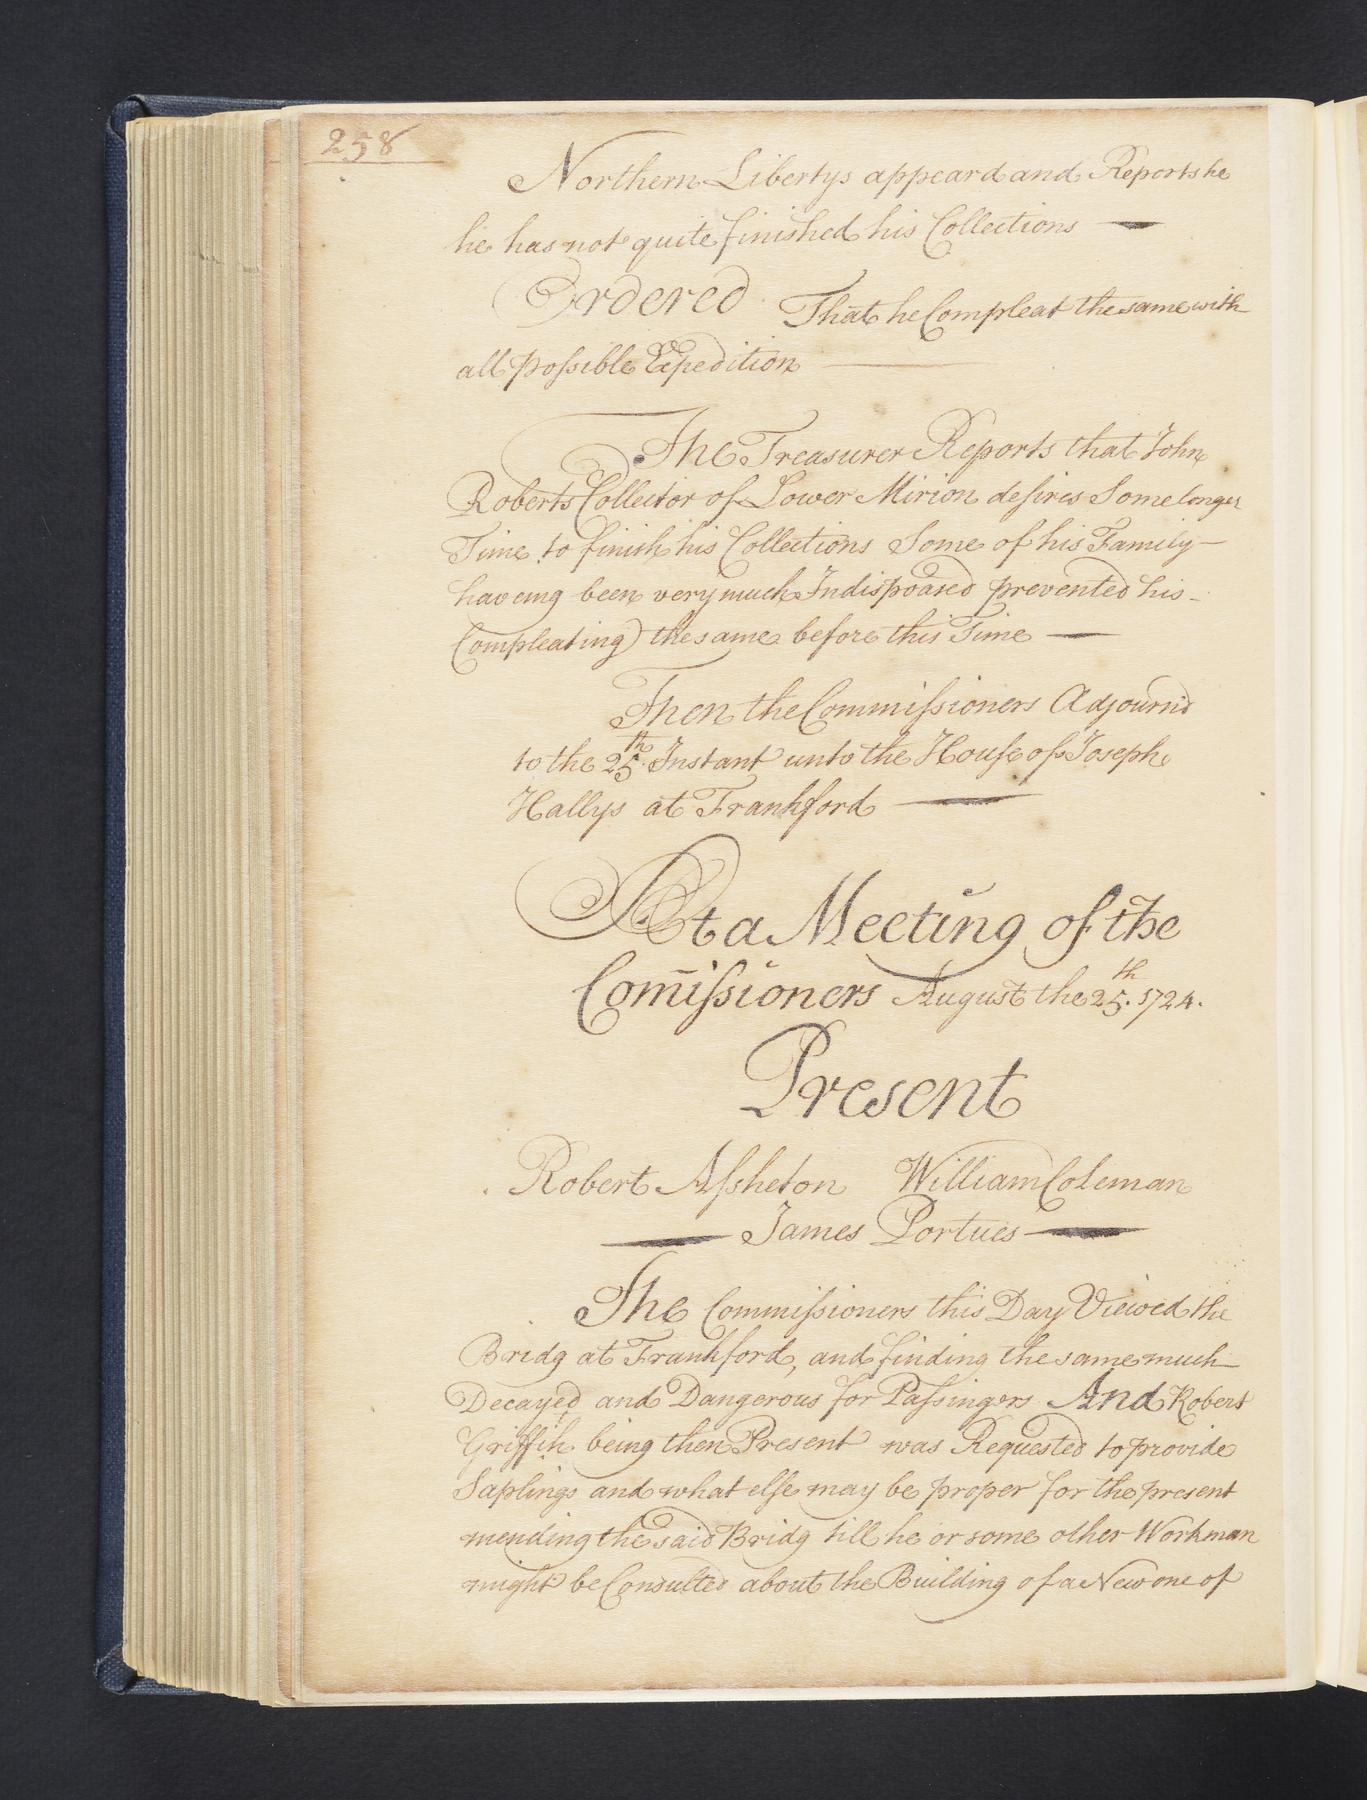 258
Northern Libertys appeard and Reports he
he has not quite finished his Collections
Ordered That he Compleat the same with
all possible Expedition
The Treasurer Reports that John
Roberts Collector of Lower Mirion desires Some longer
Time to finish his Collections Some of his Family
haveing been very much Indisposed prevented his
Compleating the same before this Time
Then the Commissioners Adjourn'd
to the 25th Instant unto the House of Joseph
Hallys at Frankford
At a Meeting of the
Com̄issioners August the 25th. 1724.
Present
Robert Assheton William Coleman
James Portues
The Commissioners this Day Viewed the
Bridg at Frankford, and finding the same much
Decayed and Dangerous for Passingers And Robert
Griffih being then Present was Requested to provide
Saplings and what else may be proper for the present
mending the said Bridg till he or some other Workman
might be Consulted about the Building of a New one of